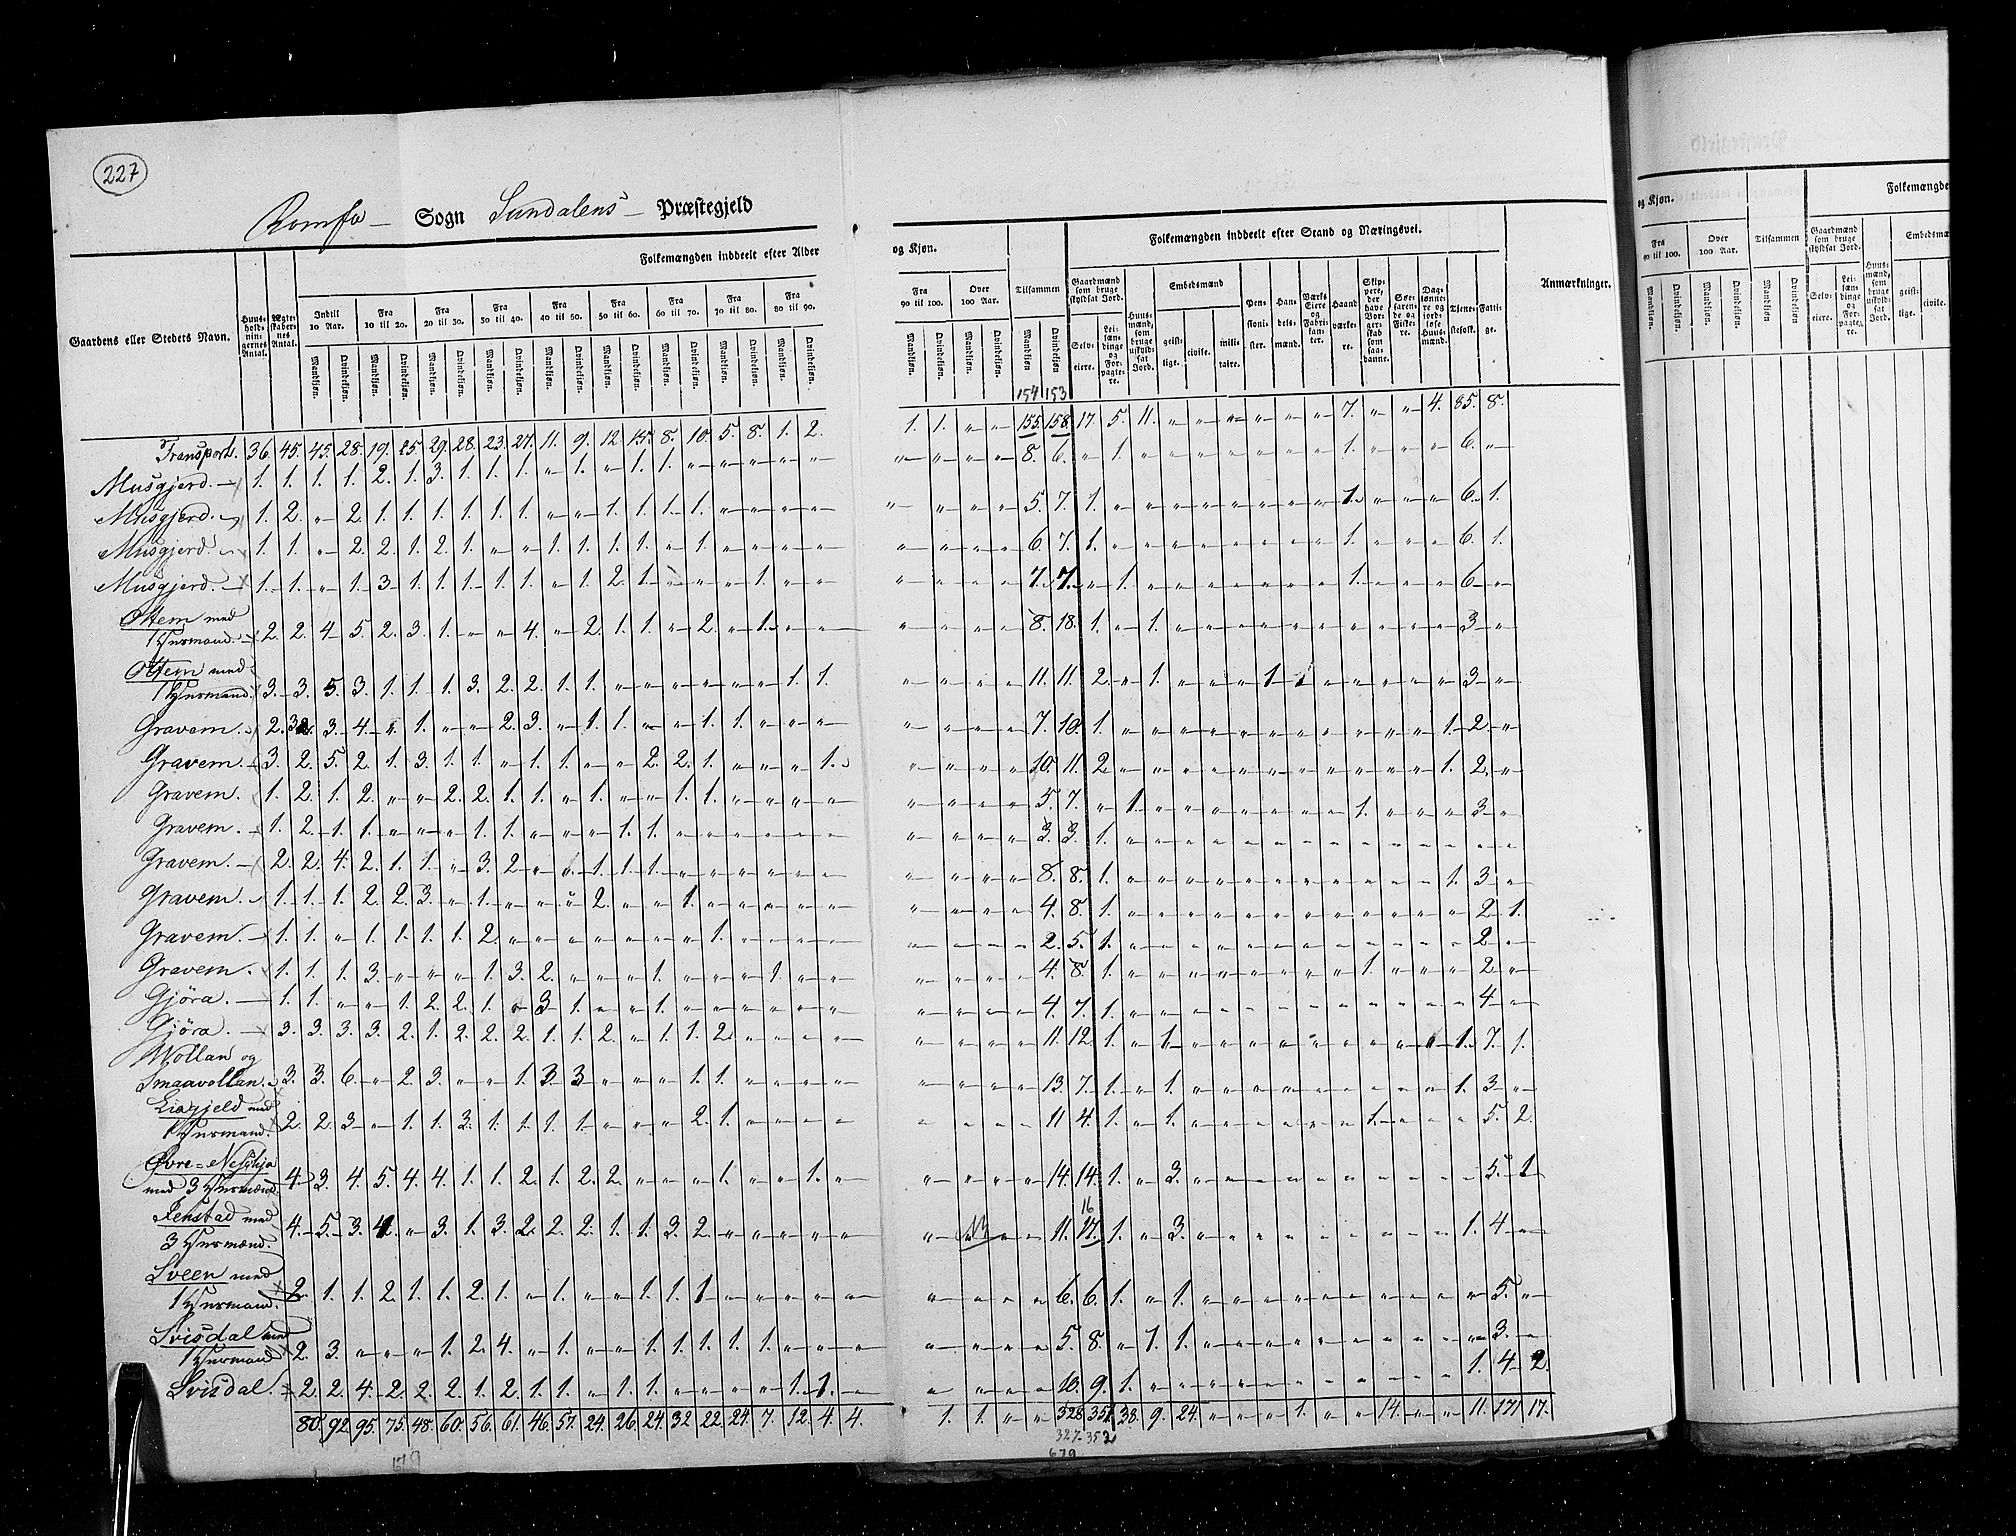 227
Romfo — Sogn Sundalens — Præstegjeld
Gaardens eller Stedets Navn.
Huus-holdningernes Antal.
Ægteskabernes Antal.
Folkemængden inddeelt efter Alder
og Kjøn.
Indtil 10 Aar.
Fra 10 til 20.
Fra 20 til 30.
Fra 30 til 40.
Fra 40 til 50.
Fra 50 til 60.
Fra 60 til 70.
Fra 70 til 80.
Fra 80 til 90.
Fra 90 til 100.
Over 100 Aar.
Tilsammen
Mandkjøn. Qvindekjøn.
Folkemængden inddeelt efter Stand og Næringsvei.
Gaardmænd som bruge skyldsat Jord.
Selv-eiere.
Lei-lændinge og For-pagtere.
Huus-mænd, som bruge uskyld-sat Jord.
Embedsmænd
geist-lige.
civile.
mili-taire.
Pen-sioni-ster.
Han-dels-mænd.
Værks Eiere og Fabri-kan-ter.
Haand-værke-re.
Skip-pere, der have Bor-ger-skab som saa-danne.
Søe-farende og Fiske-re.
Dag-lønne-re og jord-løse Huus-mænd.
Tjene-stefolk.
Fatti-ge.
Anmærkninger.
154 153
Transport. 36. 45. 45. 28. 19. 25. 29. 28. 23. 27. 11. 9. 12. 15. 8. 10. 5. 8. 1. 2. 1. 1. " " 155. 158. 17. 5. 11. " " " " " " 7. " " 4. 85. 8.
Musgjerd. 1. 1. 1. 1. 2. 1. 3. 1. 1. 1. " 1. " 1. 1. " " " " " " " " " 8. 6. " 1. " " " " " " " 1. " " " 6. "
Musgjerd. 1. 2. " 2. 1. 1. 1. 1. 1. 1. " " 1. 1. 1. 1. " " " " " " " " 5. 7. 1. " " " " " " " " 1. " " " 6. 1.
Musgjerd. 1. 1. " 2. 2. 1. 2. 1. " " 1. 1. 1. 1. " 1. " " " " " " " " 6. 7. 1. " " " " " " " " 1. " " " 6. 1.
Musgjerd. 1. 1. " 1. 3. 1. 1. 1. 1. 1. " 1. 2. 1. " " " 1. " " " " " " 7. 7. " 1. " " " " " " " 1. " " " 6. "
Ottem med
1 Huusmand. 2. 2. 4. 5. 2. 3. 1. " " 4. " 2. 1. 1. " 2. " 1. " " " " " " 8. 18. 1. " 1. " " " " " " " " " " 3. "
Ottem med
1 Huusmand. 3. 3. 5. 3. 1. 1. 1. 3. 2. 2. 1. 1. " " " " " " 1. 1. " " " " 11. 11. 2. " 1. " " " 1. " " " " " " 3. "
Gravem. 2. 3. 4. " 1. " " 2. 3. " 1. 1. " " 1. 1. " " " " " " " 7. 10. 1. " " " " " " " " " " " 1. 2. "
Gravem. 3. 2. 5. 2. 1. 3. 1. 1. " 1. 1. " " 2. 2. 1. " " " 1. " " " " 10. 11. 2. " " " " " " " " " " " 1. 2. "
Gravem. 1. 2. 1. 2. " " 2. 2. 1. 1. " 1. " " 1. 1. " " " " " " " " 5. 7. " 1. " " " " " " " 1. " " " 3. "
Gravem. 1. 2. 1. 1. " " " 1. 1. " " " 1. 1. " " " " " " " " " " 3. 3. 1. " " " " " " " " " " " " " "
Gravem. 2. 2. 4. 2. 1. 1. " 3. 2. " " 1. 1. 1. " " " " " " " " " " 8. 8. 1. " " " " " " " " " " " 1. 3. "
Gravem. 1. 1. 1. 2. 2. 3. " 1. " " " 2. " " 1. " " " " " " " " " 4. 8. 1. " " " " " " " " " " " " 2. 1.
Gravem. 1. 1. " 1. 1. 1. 1. 2. " " " " " " " 1. " " " " " " " " 2. 5. 1. " " " " " " " " " " " " 2. "
Gravem. 1. 1. 1. 3. " " " 1. 3. 2. " " " 1. " " " 1. " " " " " " 4. 8. 1. " " " " " " " " 1. " " " 2. "
Gjöra. 1. 1. " " 1. 2. 2. 1. " 3. 1. " " 1. " " " " " " " " " " 4. 7. 1. " " " " " " " " " " " " 4. "
Gjöra. 3. 3. 3. 3. 2. 1. 2. 2. 2. 1. 1. 2. " 1. 1. 2. " " " " " " " " 11. 12. 1. " 1. " " " " " " " " " 1. 7. 1.
Wollan og
Smaavollan. 3. 3. 6. " 2. 3. " " 1. 3. 3. " " " 1. 1. " " " " " " " " 13. 7. 1. " 1. " " " " " " " " " 1. 3. "
Liagjeld med
1 Huusmand. 2. 2. 3. " 1. 1. 3. 1. 1. 1. 1. " " " 2. 1. " " " " " " " " 11. 4. 1. " 1. " " " " " " 1. " " " 5. 2.
Øvre-Nesghja
med 3 Huusmænd. 4. 3. 4. 5. 4. 4. 1. 1. 2. 1. 2. 2. " " " 1. " " 1. " " " " " 14. 14. 1. " 3. " " " " " " " " " " 5. 1.
16
Jenstad med
3 Huusmænd. 4. 5. 3. 4. " 3. 1. 3. 2. 2. 2. 1. 1. 3. 2. " " " " " " " " " 11. 17. 1. " 3. " " " " " " " " " 1. 4. "
Sveen med
1 Huusmand. 2. 1. 1. 2. 1. 1. 2. 1. " 1. " " 1. 1. 1. " " " " " " " " " 6. 6. 1. " 1. " " " " " " " " " " 5. "
Svisdal med
1 Huusmand. 2. 3. " " " 1. 2. 4. " 1. " " 1. 1. 1. 1. 1. " " " " " " " 5. 8. " 1. 1. " " " " " " " " " " 3. "
Svisdal. 2. 2. 4. 2. 2. 2. 1. 2. 1. 1. " 1. 1. " " " " 1. 1. " " " " " 10. 9. 1. " " " " " " " " " " " 1. 4. 2.
80. 92. 95. 75. 48. 60. 56. 61. 46. 57. 24. 26. 24. 32. 22. 24. 7. 12. 4. 4. 1. 1. " " 328. 351. 38. 9. 24. " " " 1. " " 14. " " 11. 171. 17.
327. 352
679
og Kjøn.
Fra 90 til 100.
Over 100 Aar.
Tilsammen
Mandkjøn. Qvindekjøn.
Folkemængde
Gaardmænd som bruge skyldsat Jord.
Selv-eiere.
Lei-lændinge og For-pagte-re.
Huus-mænd, som bruge uskyld-sat Jord.
Embedsmæ
geist-lige.
civile.